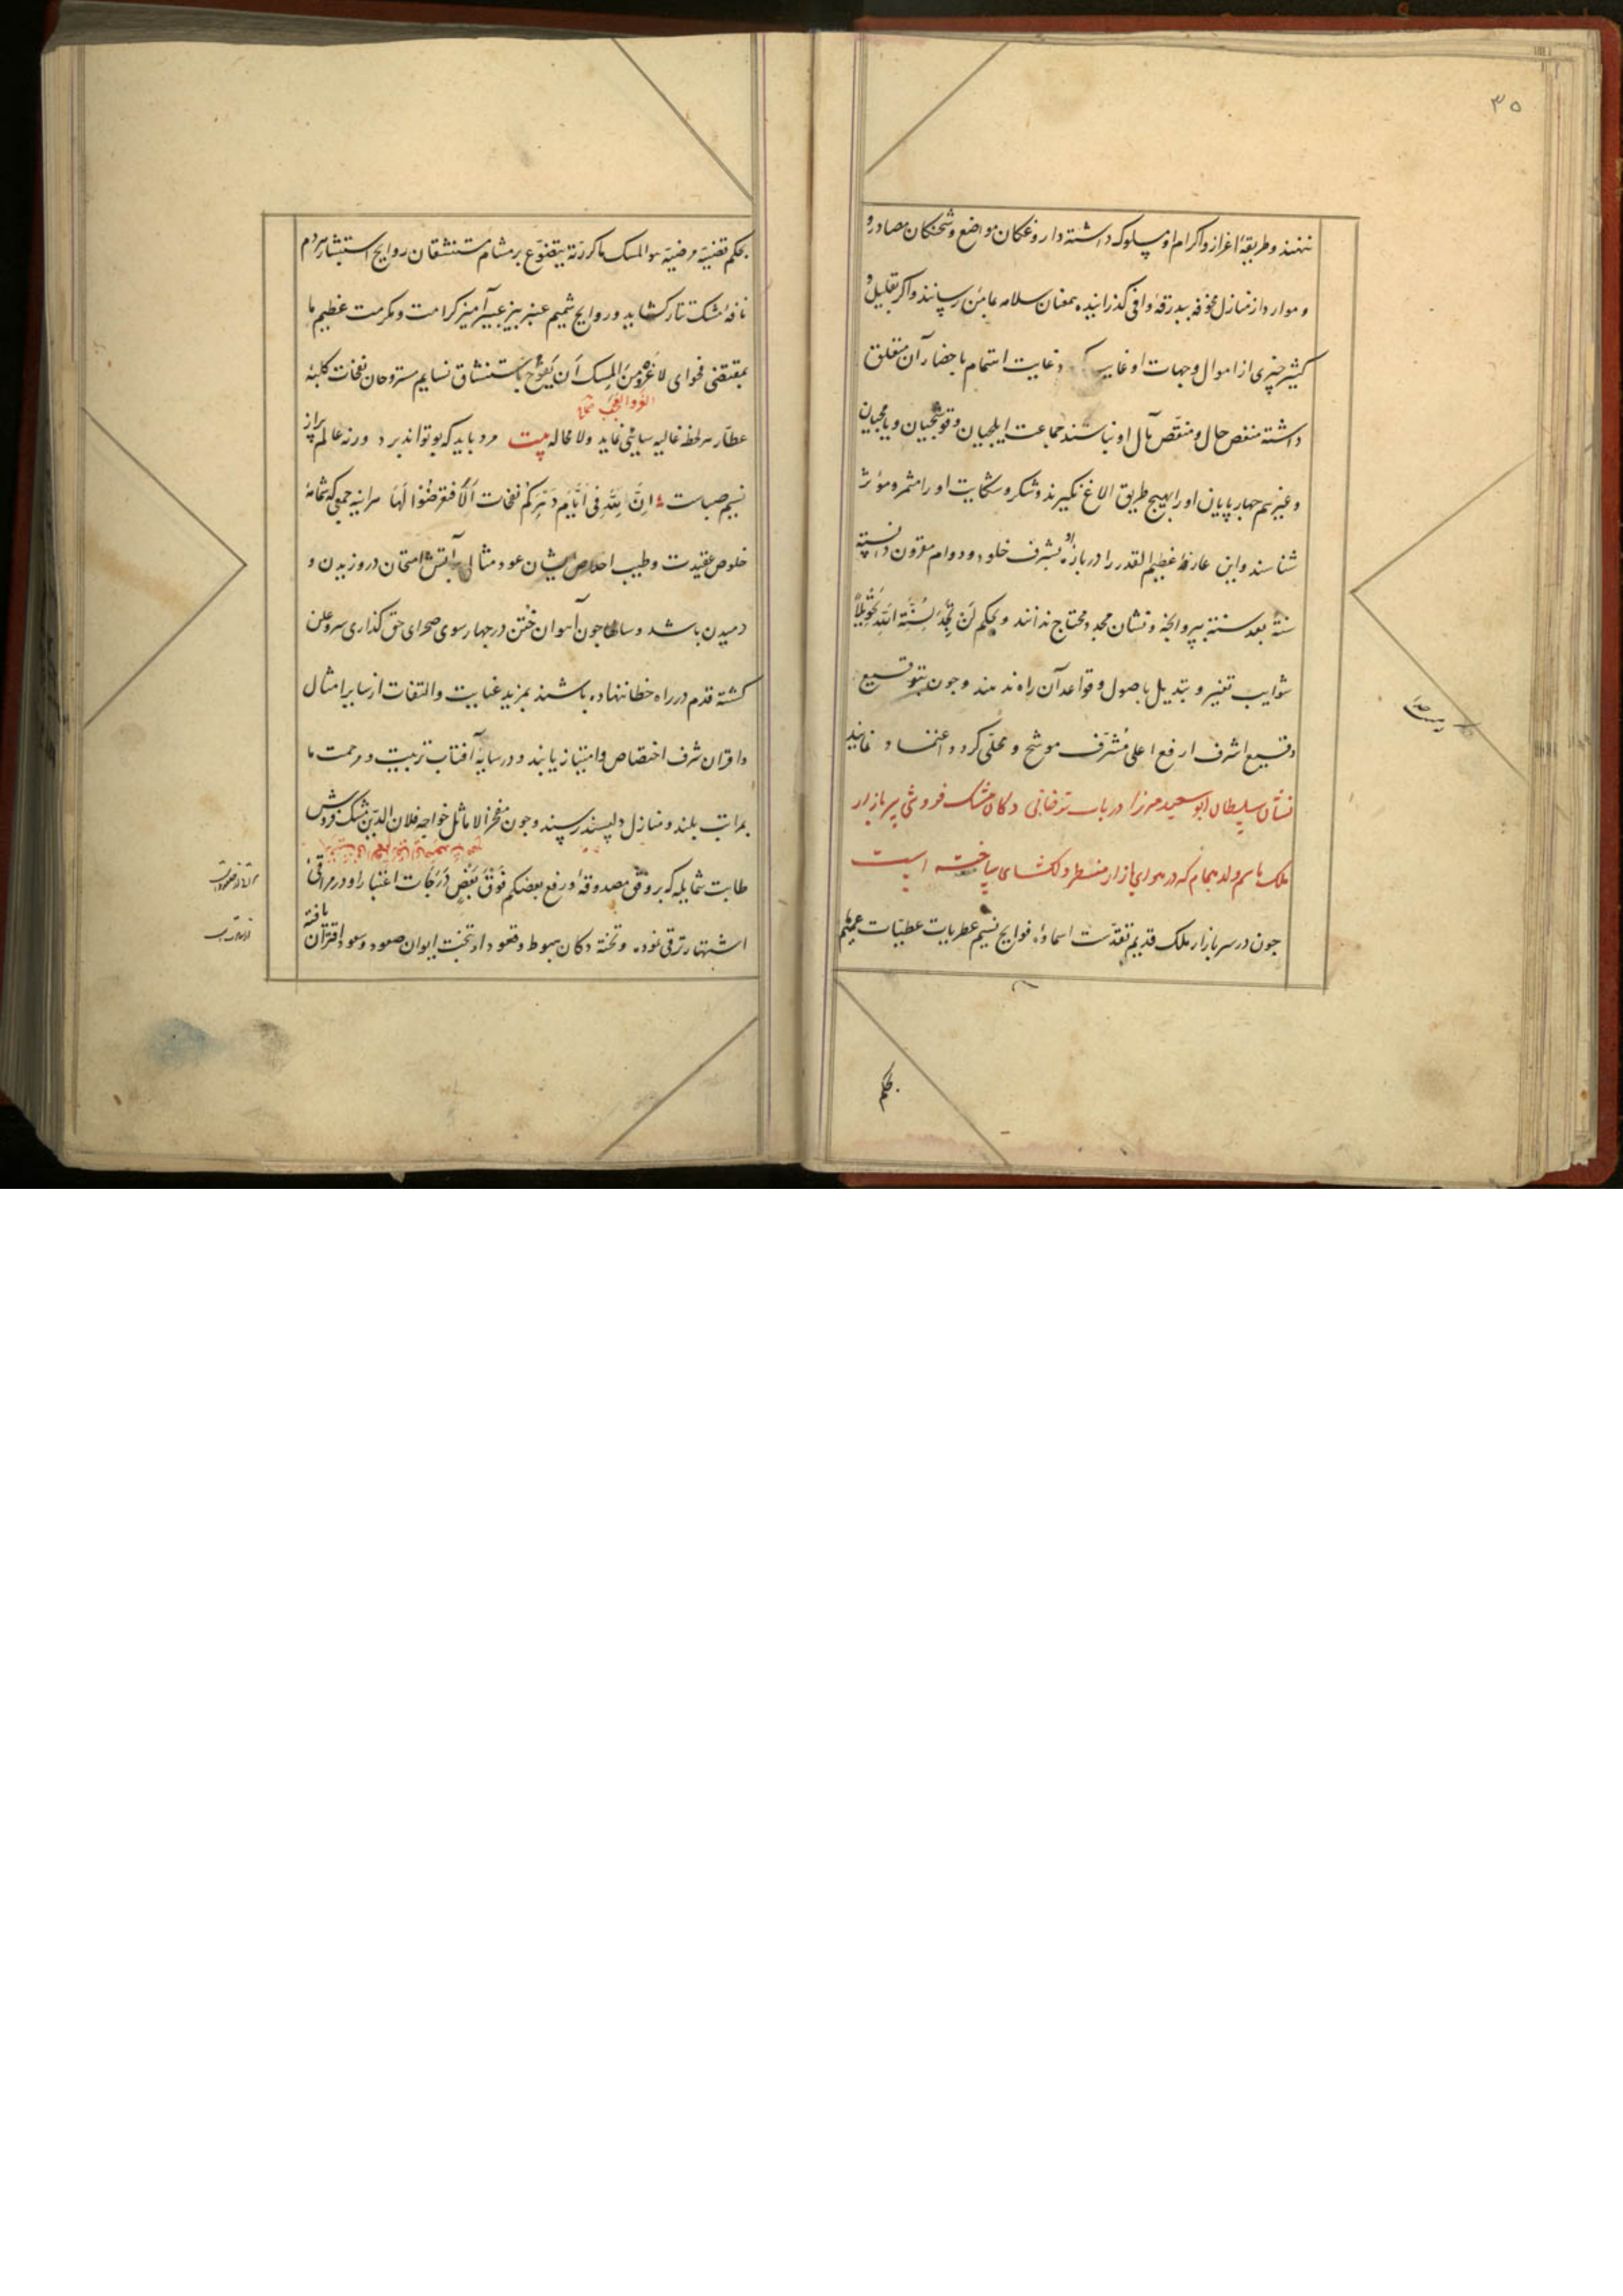 ۳۵
ننهند و طریقهٔ اعزاز و اکرام او مسلوک داشته داروغکان مواضع و شحنکان مصادر و
و موارد از منازل مخوفه ببدرقهٔ وافی کذرانیده بمغنان سلامه عامن رسانند و اکر بقلیل و
کثیر چیزی از اموال و جهات او غایب و غایت اهتمام باحضار آن متعلق
داشته منغص حال و منقص مآل او نباشند جماعت ایلجیان و قوشجیان و یامجیان
و غیرهم جهارپایان او را بهیج طریق الاغ نکیرند و شکر و شکایت او را مثمر و مؤثر
شناسند و این عارفهٔ عظیم القدر را درباره او بشرف خلود و دوام مقرون دانسته
سنة بعد سنة بپروانجه و نشان مجدد محتاج ندانند و بحکم لَن تَجِدَ لِسُنَّةِ اللهِ تَحْوِیلاً
شوایب تغییر و تبدیل باصول و قواعد آن راه ندهند و جون بتوقیع
وقیع اشرف ارفع اعلی مُشرّف موشح و محلّی کردد اعتماد نمایند
نشان سلطان ابوسعید میرزا در باب ترخانی دکان مشک فروشی سر بازار
ملک باسم ولد همام که در هوای بازار منظر دلکشای ساخته است
جون در سر بازار ملک قدیم تقدّست اسماؤه فوایح نسیم عطریات عطیّات عمیم
بحکم
بحکم قضیهٔ مرضیهٔ هو المسک ما کررته یتضوّع بر مشام مستنشقان روایح استبشار هر دم
نافهٔ مشک تتار کشاید و روایح شمیم عنبربیز عبیرآمیز کرامت و مکرمت عظیم ما
بمقتضی فحوای لا غَرْوَ مِنَ المِسک اَن یَفُوحَ باستنشاق نسایم مستروحان نفحات کلبهٔ
عطّار هر لحظه غالیه سایئی نماید ولا محاله بیت مرد باید که بو تواند برد ورنه عالم پر از
نسیم صباست اِنَّ لِلّهِ فی اَیّامِ دَهرِکُم نَفَحات اَلا فتعرضُوا لَها هر آینه جمعی که شمامهٔ
خلوص عقیدت و طیب اخلاص ایشان عود مثال بر آتش امتحان در وزیدن و
دمیدن باشد و سالها جون آهوان ختن در جهار سوی صحرای حق کذاری سر و علن
کشته قدم در راه خطا ننهاده باشند بمزید عنایت و التفات از سایر امثال
و اقران شرف اختصاص و امتیاز یابند و در سایهٔ آفتاب تربیت و مرحمت ما
بمراتب بلند و منازل دلپسند رسند و جون مفخر الاماثل خواجه فلان الدین مشک فروش
طابت شمایله که بر وفق مصدوقهٔ و رفع بعضکم فَوْقَ بَعْضٍ دَرَجَات اعتبار او در مراقئ
اشتهار ترقی نموده و تختهٔ دکان هبوط و قعود او بتخت ایوان صعود و سعود اقتران یافته